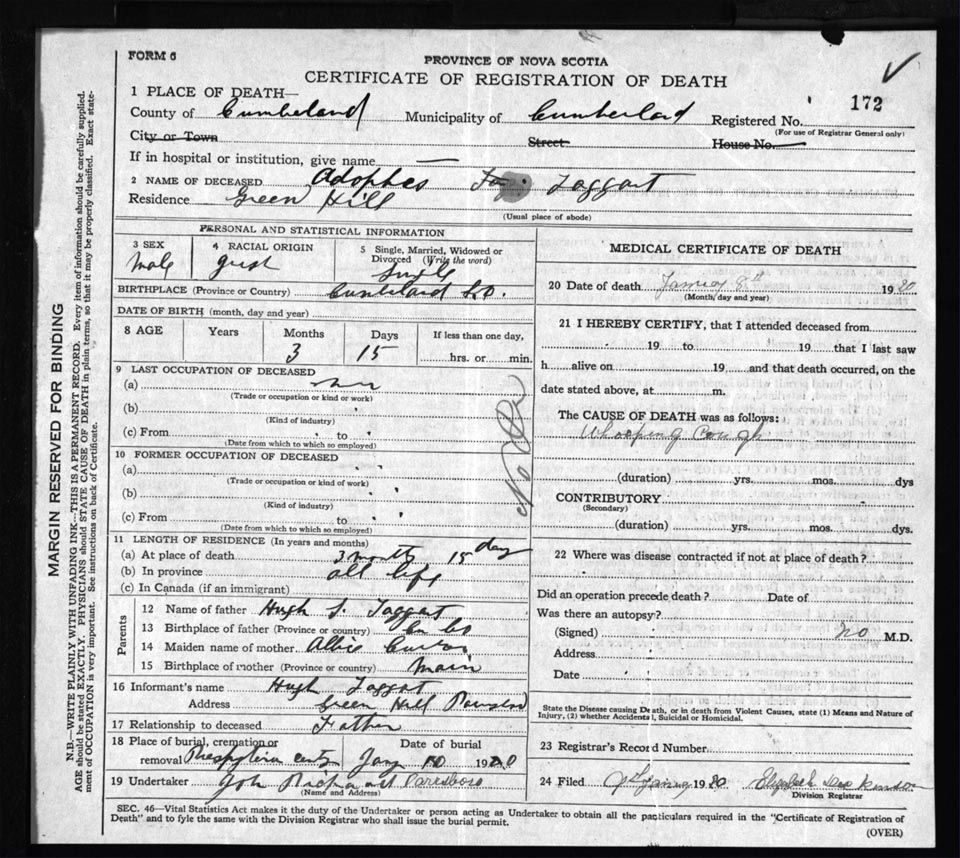 FORM 6
PROVINCE OF NOVA SCOTIA
CERTIFICATE OF REGISTRATION OF DEATH
172
1 PLACE OF DEATH—
County of Cumbeland Municipality of Cumberland Registered No.
(For use of Registrar General only)
City or Town Street House No.
If in hospital or institution, give name —
2 NAME OF DECEASED Adophes Taggart
Residence Green Hill
(Usual place of abode)
PERSONAL AND STATISTICAL INFORMATION
3 SEX 4 RACIAL ORIGIN 5 Single, Married, Widowed or Divorced (Write the word)
Male Single
BIRTHPLACE (Province or Country) Cumbeland
DATE OF BIRTH (month, day and year)
8 AGE Years Months Days If less than one day,
3 15 hrs. or min.
9 LAST OCCUPATION OF DECEASED
(a)
(Trade or occupation or kind or work)
(b)
(Kind of industry)
(c) From to
(Date from which to which so employed)
10 FORMER OCCUPATION OF DECEASED
(a)
(Trade or occupation or kind of work)
(b)
(Kind of industry)
(c) From to
(Date from which to which so employed)
No Dr
11 LENGTH OF RESIDENCE (In years and months)
(a) At place of death 3 months 15 day
(b) In province all life
(c) In Canada (if an immigrant)
Parents
12 Name of father Hugh S. Taggart
13 Birthplace of father (Province or country)
14 Maiden name of mother
15 Birthplace of mother (Province or country) Main
16 Informant's name Hugh Taggart
Address Green Hill
17 Relationship to deceased Father
18 Place of burial, cremation or Date of burial
removal Jany 10 1920
19 Undertaker John
(Name and Address)
MEDICAL CERTIFICATE OF DEATH
20 Date of death 8th 1920
(Month, day and year)
21 I HEREBY CERTIFY, that I attended deceased from
19 to 19 that I last saw
h alive on 19 and that death occurred, on the
date stated above, at m.
The CAUSE OF DEATH was as follows:
Whooping Cough
(duration) yrs. mos. dys
CONTRIBUTORY
(Secondary)
(duration) yrs. mos. dys.
22 Where was disease contracted if not at place of death?
Did an operation precede death? Date of
Was there an autopsy?
(Signed) no M.D.
Address
Date
State the Disease causing Death, or in death from Violent Causes, state (1) Means and Nature of
Injury, (2) whether Accidental, Suicidal or Homicidal.
23 Registrar's Record Number
24 Filed 1920
Division Registrar
SEC. 46—Vital Statistics Act makes it the duty of the Undertaker or person acting as Undertaker to obtain all the particulars required in the "Certificate of Registration of
Death" and to fyle the same with the Division Registrar who shall issue the burial permit.
(OVER)
MARGIN RESERVED FOR BINDING
N.B.—WRITE PLAINLY WITH UNFADING INK—THIS IS A PERMANENT RECORD. Every item of information should be carefully supplied.
AGE should be stated EXACTLY. PHYSICIANS should STATE CAUSE OF DEATH in plain terms, so that it may be properly classified. Exact state-
ment of OCCUPATION is very important. See instructions on back of Certificate.